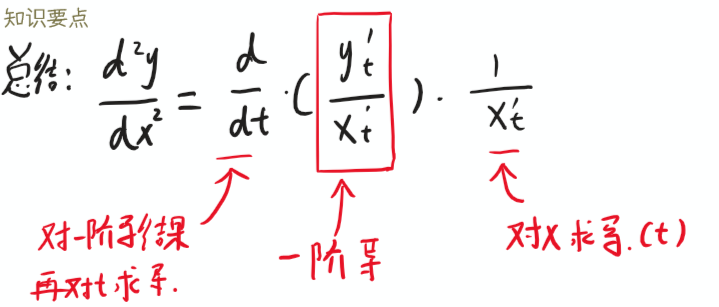 知识要点
总结: d²y/dx² = d/dt · ( y't / x't ) · 1/x't
对一阶导结果
再对t求导.
一阶导
对x求导.(t)